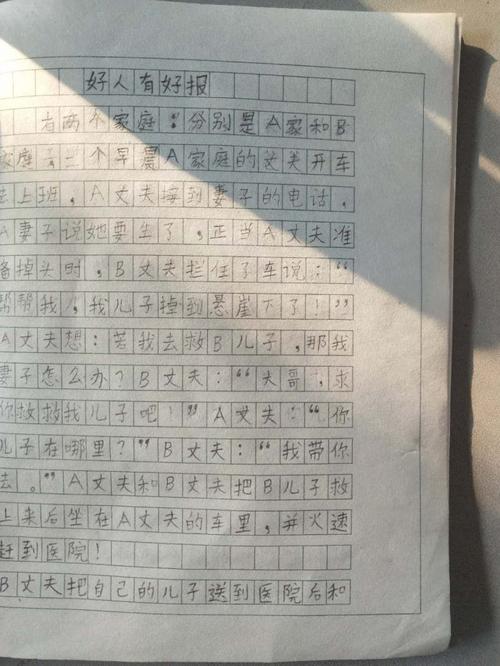 好人有好报
有两个家庭：分别是A家和B
家庭：一个早晨A家庭的丈夫开车
去上班，A丈夫接到妻子的电话，
A妻子说她要生了，正当A丈夫准
备掉头时，B丈夫拦住了车说：“
帮帮我，我儿子掉到悬崖下了！”
A丈夫想：若我去救B儿子，那我
妻子怎么办？B丈夫：“大哥，求
你救救我儿子吧！”A丈夫：“你
儿子在哪里？”B丈夫：“我带你
去。”A丈夫和B丈夫把B儿子救
上来后坐在A丈夫的车里，并火速
赶到医院！
B丈夫把自己的儿子送到医院后和